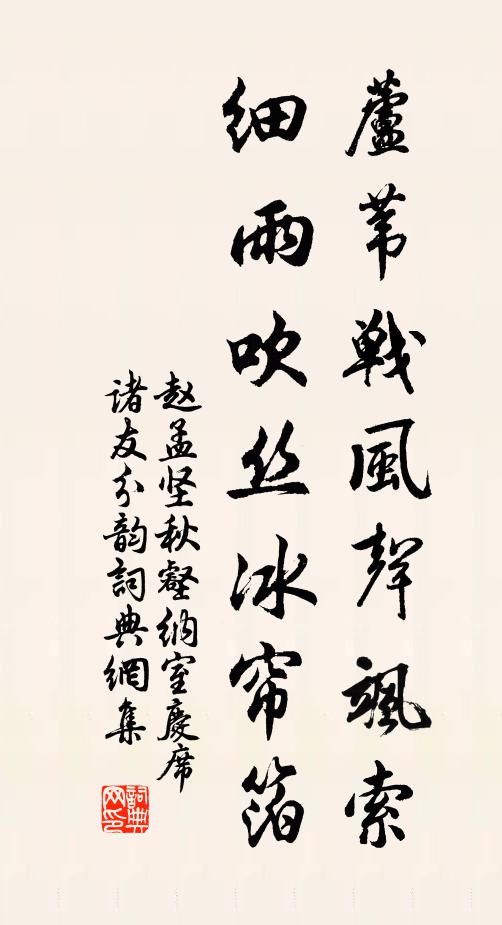 蘆葦戰風聲颯索
細雨吹丝冰帘箔
赵孟坚秋壑纳室慶席
诸友分韵詞典網集
詞典网印